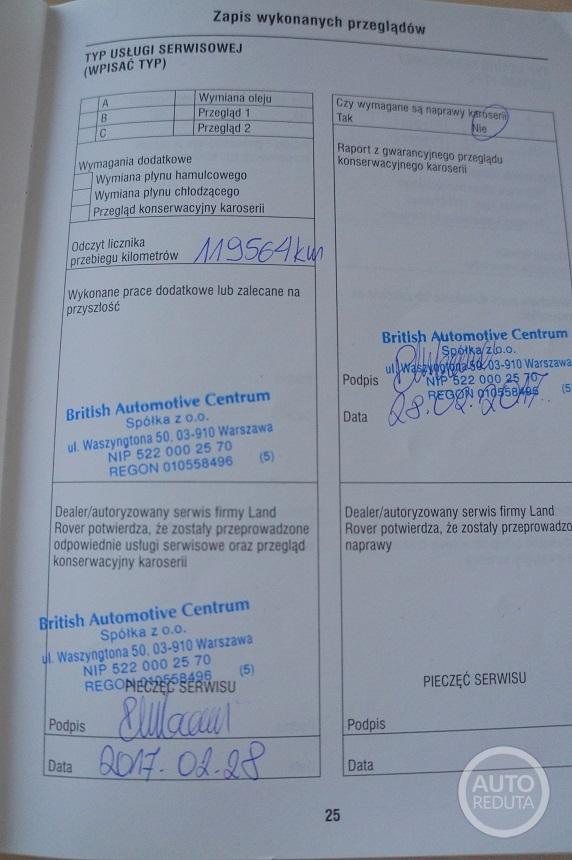 Zapis wykonanych przeglądów
TYP USŁUGI SERWISOWEJ
(WPISAĆ TYP)
A Wymiana oleju
B Przegląd 1
C Przegląd 2
Wymagania dodatkowe
Wymiana płynu hamulcowego
Wymiana płynu chłodzącego
Przegląd konserwacyjny karoserii
Odczyt licznika
przebiegu kilometrów 119564km
Wykonane prace dodatkowe lub zalecane na
przyszłość
British Automotive Centrum
Spółka z o.o.
ul. Waszyngtona 50, 03-910 Warszawa
NIP 522 000 25 70
REGON 010558496 (5)
Dealer/autoryzowany serwis firmy Land
Rover potwierdza, że zostały przeprowadzone
odpowiednie usługi serwisowe oraz przegląd
konserwacyjny karoserii
British Automotive Centrum
Spółka z o.o.
ul. Waszyngtona 50, 03-910 Warszawa
NIP 522 000 25 70
REGON 010558496 (5)
PIECZĘĆ SERWISU
Podpis
Data 2017.02.28
Czy wymagane są naprawy karoserii
Tak
Nie
Raport z gwarancyjnego przeglądu
konserwacyjnego karoserii
British Automotive Centrum
Spółka z o.o.
ul. Waszyngtona 50, 03-910 Warszawa
NIP 522 000 25 70
REGON 010558496 (5)
Podpis
Data 28.02.2017.
Dealer/autoryzowany serwis firmy Land
Rover potwierdza, że zostały przeprowadzo
naprawy
PIECZĘĆ SERWISU
Podpis
Data
25
AUTO
REDUTA